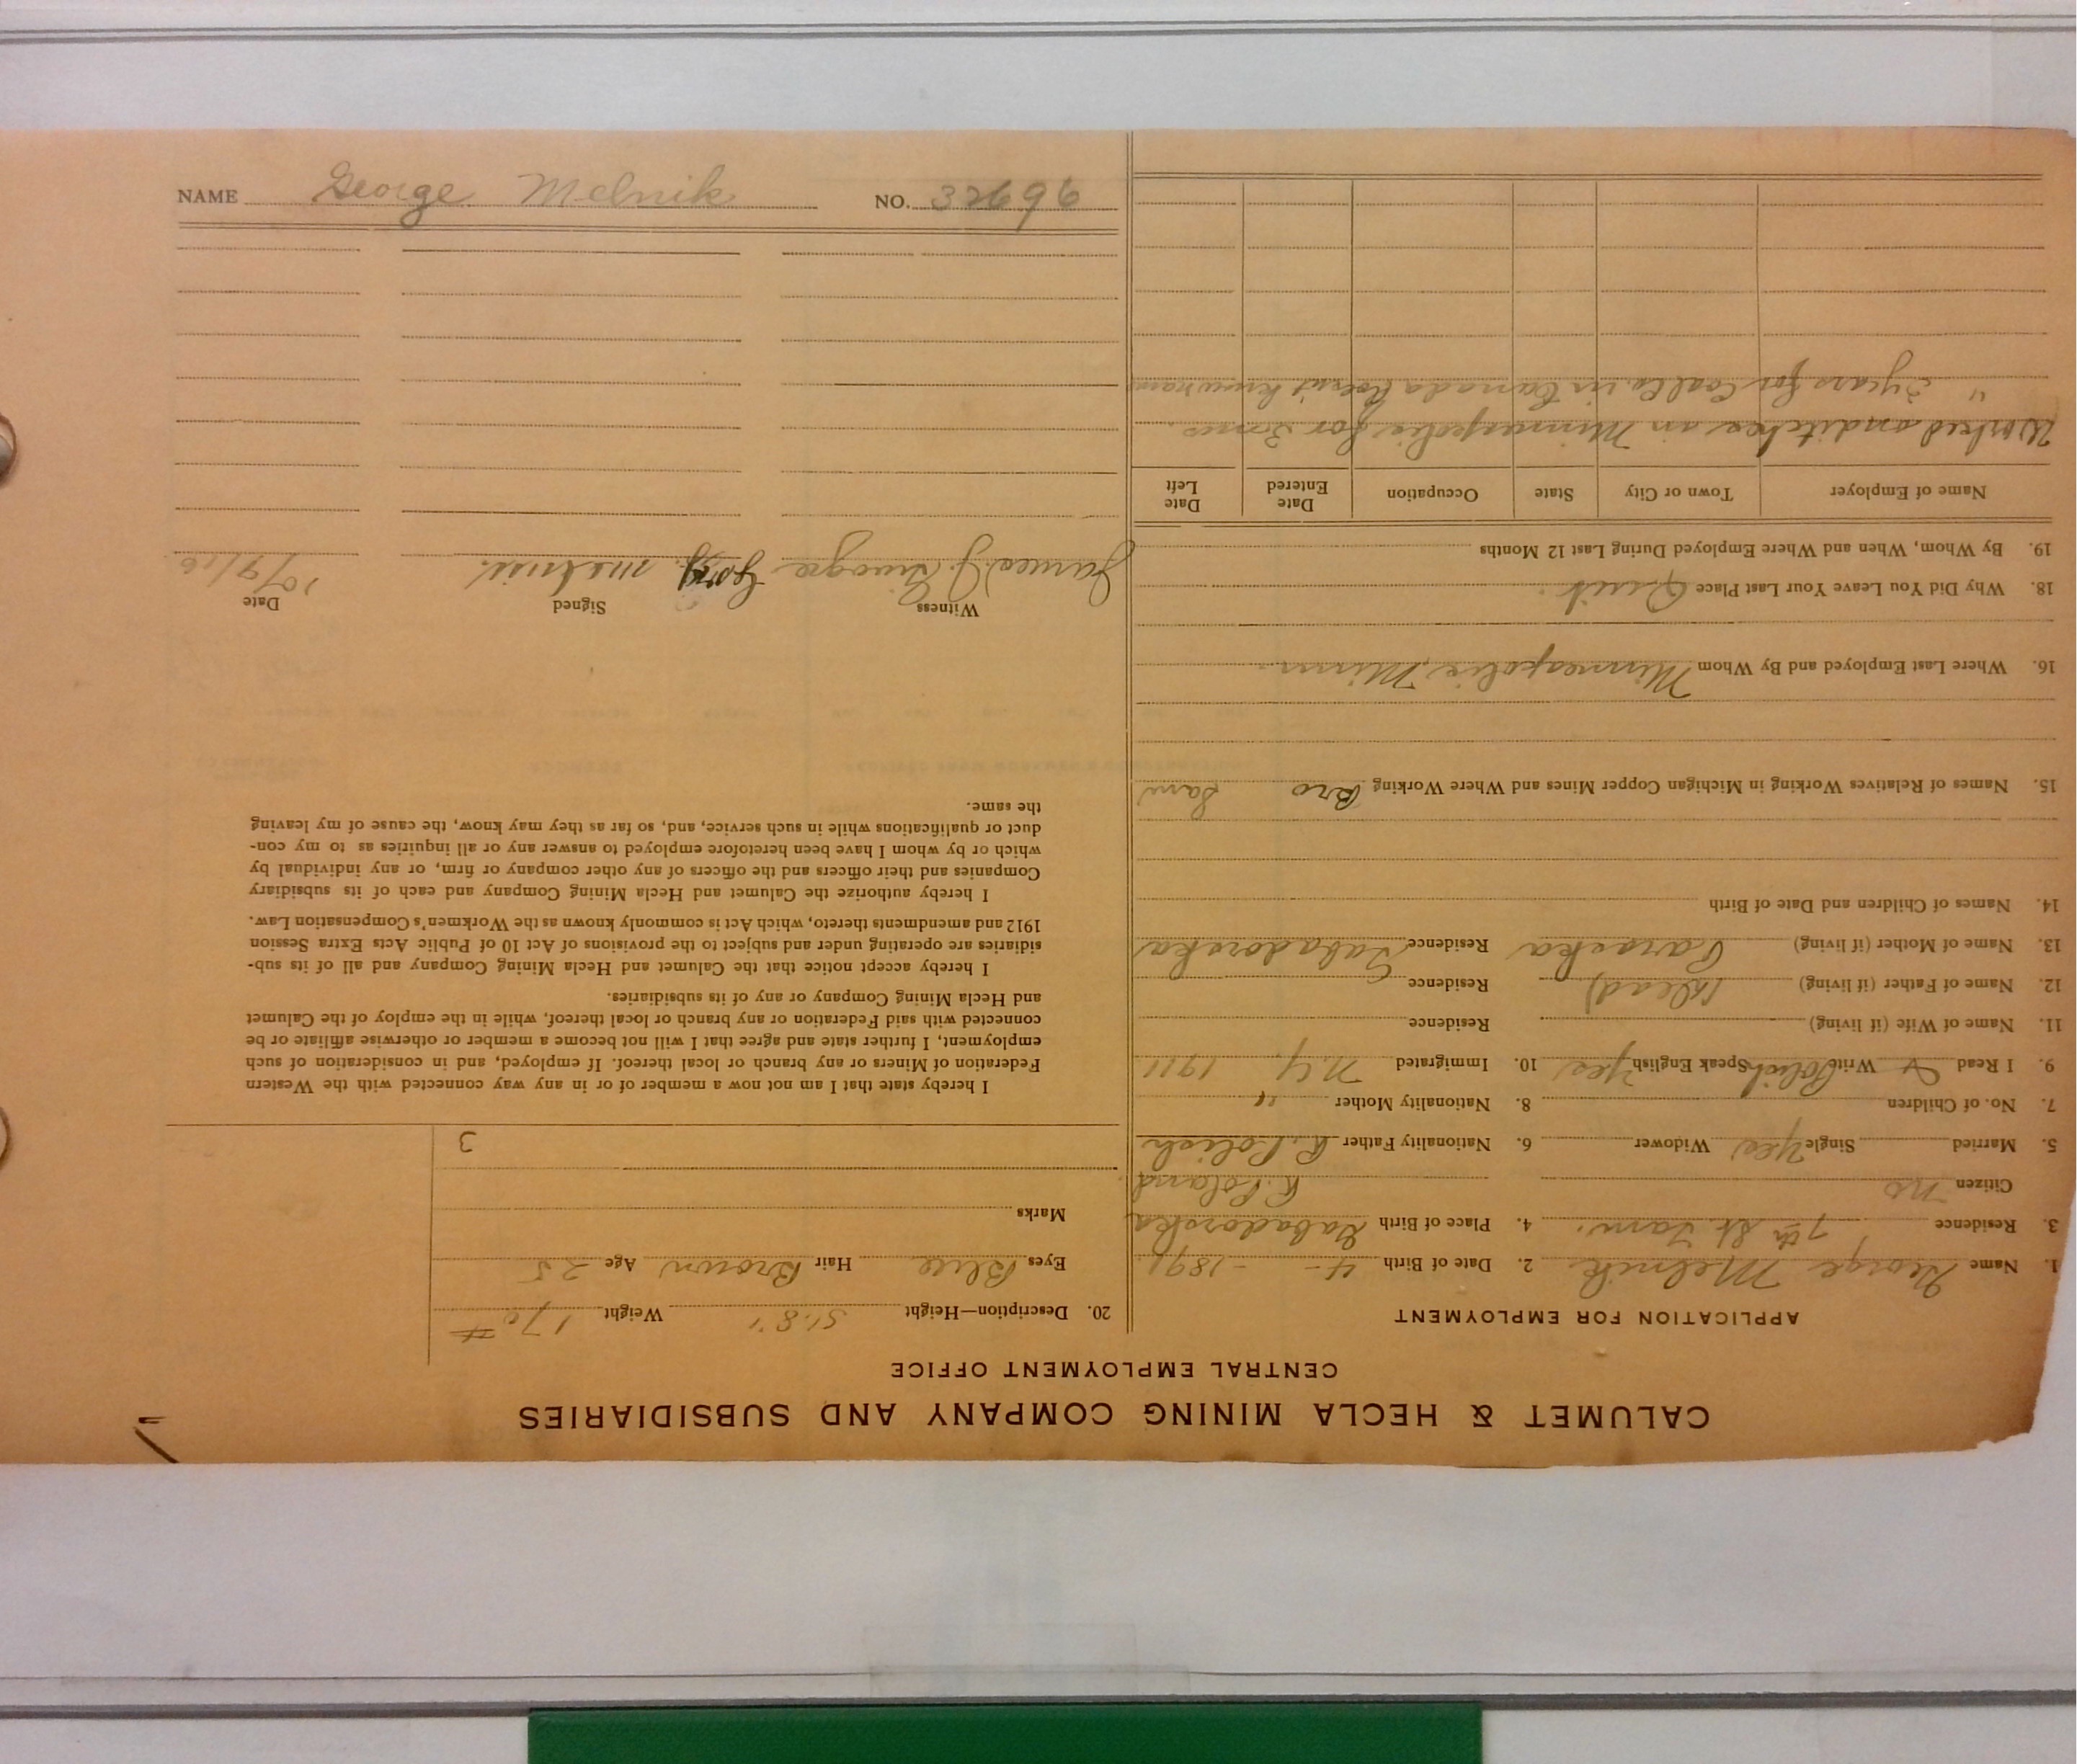 CALUMET & HECLA MINING COMPANY AND SUBSIDIARIES
CENTRAL EMPLOYMENT OFFICE
APPLICATION FOR EMPLOYMENT
1. Name George Melnik 2. Date of Birth 4 - - 1891
3. Residence 7th St. Tam. 4. Place of Birth
Citizen no R. Poland
5. Married Single Yes Widower 6. Nationality Father R. Polish
7. No. of Children 8. Nationality Mother "
9. I Read & Write Polish Speak English Yes 10. Immigrated N.Y. 1911
11. Name of Wife (if living) Residence
12. Name of Father (if living) (dead) Residence
13. Name of Mother (if living) Paraska Residence
14. Names of Children and Date of Birth
15. Names of Relatives Working in Michigan Copper Mines and Where Working Bro
16. Where Last Employed and By Whom Minneapolis, Minn.
18. Why Did You Leave Your Last Place Quit.
19. By Whom, When and Where Employed During Last 12 Months
Name of Employer Town or City State Occupation Date Entered Date Left
Worked on ditches in Minneapolis for 3 mos.
" 3 years for in Canada Doesn't know name
20. Description—Height 5'.8" Weight 170 #
Eyes Blue Hair Brown Age 25
Marks
3
I hereby state that I am not now a member of or in any way connected with the Western
Federation of Miners or any branch or local thereof. If employed, and in consideration of such
employment, I further state and agree that I will not become a member or otherwise affiliate or be
connected with said Federation or any branch or local thereof, while in the employ of the Calumet
and Hecla Mining Company or any of its subsidiaries.
I hereby accept notice that the Calumet and Hecla Mining Company and all of its sub-
sidiaries are operating under and subject to the provisions of Act 10 of Public Acts Extra Session
1912 and amendments thereto, which Act is commonly known as the Workmen's Compensation Law.
I hereby authorize the Calumet and Hecla Mining Company and each of its subsidiary
Companies and their officers and the officers of any other company or firm, or any individual by
which or by whom I have been heretofore employed to answer any or all inquiries as to my con-
duct or qualifications while in such service, and, so far as they may know, the cause of my leaving
the same.
Witness Signed Date
James J. melnik 10/9/16
NAME George Melnik NO. 32696